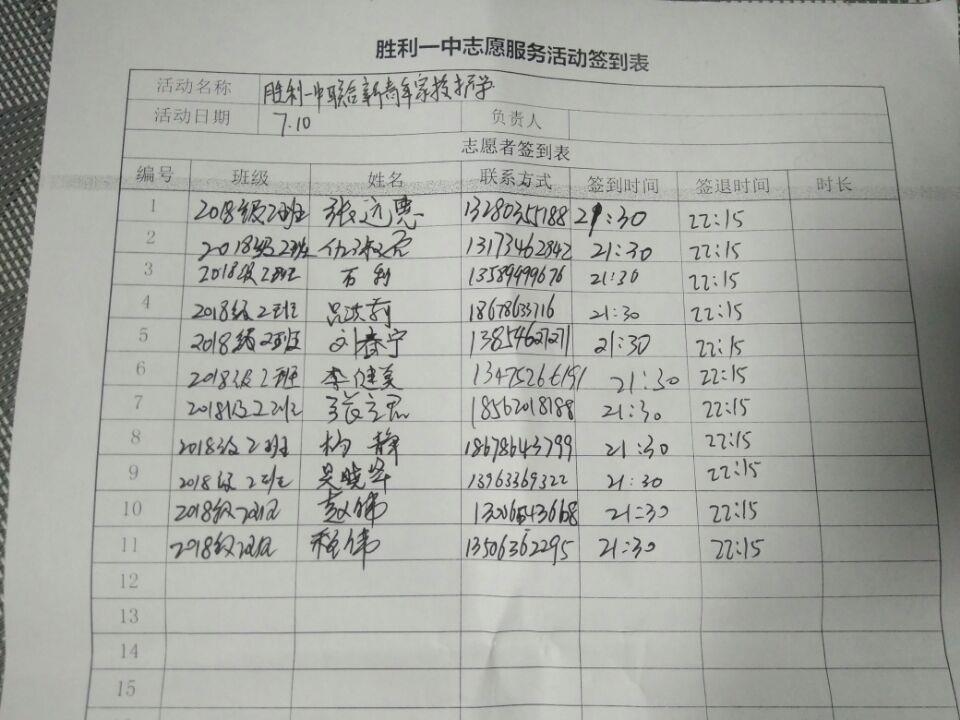 胜利一中志愿服务活动签到表
活动名称 胜利一中联合新青年家校护学
活动日期 7.10 负责人
志愿者签到表
编号 班级 姓名 联系方式 签到时间 签退时间 时长
1 2018级2班 张远惠 13280355188 21:30 22:15
2 2018级2班 13173462842 21:30 22:15
3 2018级2班 万利 13589499676 21:30 22:15
4 2018级2班 吕洪莉 18678633716 21:30 22:15
5 2018级2班 刘春宁 13854621271 21:30 22:15
6 2018级2班 李健美 13475266151 21:30 22:15
7 2018级2班 18562018188 21:30 22:15
8 2018级2班 杨静 18678643799 21:30 22:15
9 2018级2班 吴晓华 13963369322 21:30 22:15
10 2018级2班 赵伟 21:30 22:15
11 2018级2班 程伟 13506362295 21:30 22:15
12
13
14
15